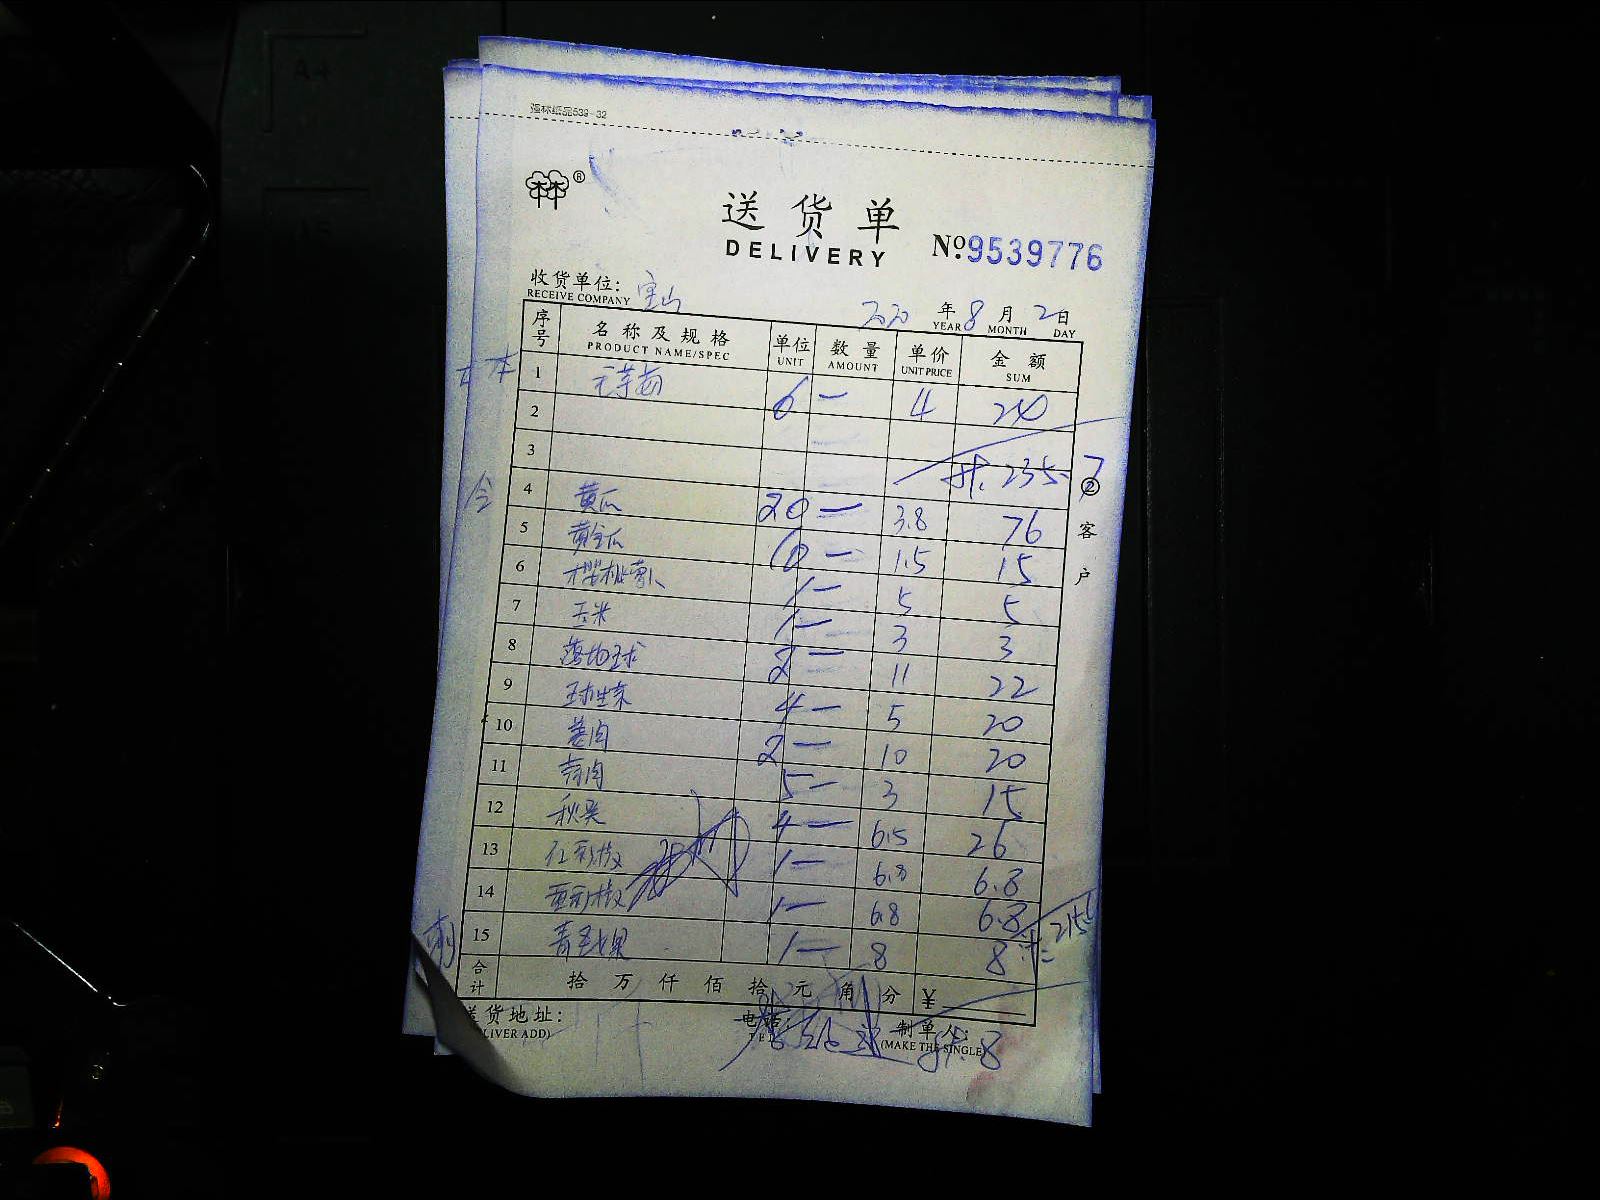 强林纸品539-32
送货单
DELIVERY
№:9539776
收货单位: 宝山
RECEIVE COMPANY
2020 年 8 月 2 日
YEAR MONTH DAY
序号 名称及规格 单位 数量 单价 金额
PRODUCT NAME/SPEC UNIT AMOUNT UNIT PRICE SUM
本 本
1 毛芋艿 6 — 4 24
2
3 计: 235.7
②客户
4 黄瓜 20 — 3.8 76
5 黄金瓜 10 — 1.5 15
6 樱桃萝卜 1 — 5 5
7 玉米 1 — 3 3
8 落地球 2 — 11 22
9 球生菜 4 — 5 20
10 姜肉 2 — 10 20
11 蒜肉 5 — 3 15
12 秋葵 4 — 6.5 26
13 红彩椒 1 — 6.8 6.8
14 黄彩椒 1 — 6.8 6.8
15 青圣女果 1 — 8 8
计: 215
合计 拾 万 仟 佰 拾 元 角 分 ¥
送货地址:
LIVER ADD)
电话:
TEL
制单人:
(MAKE THE SINGLE)
计: 8